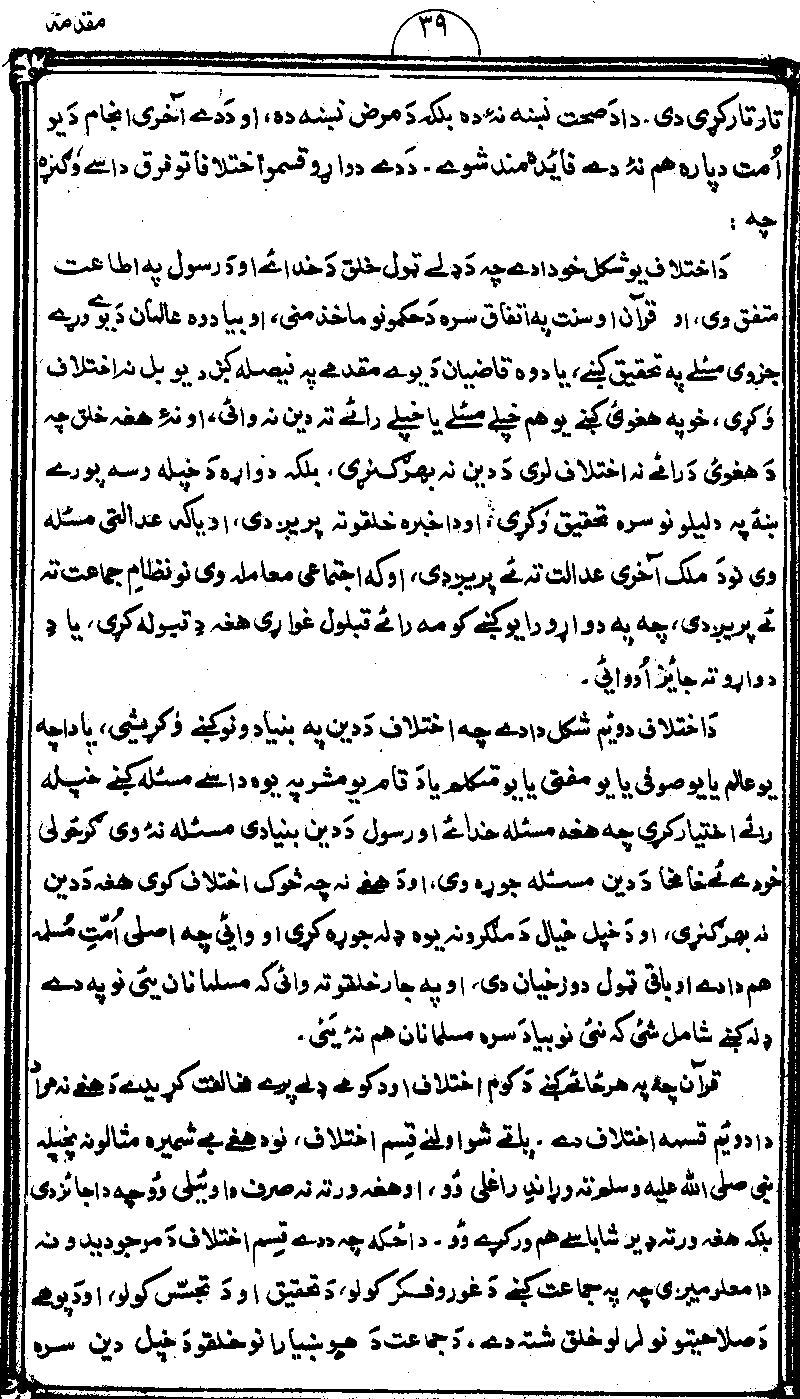 مقدمہ
۳۹
تار تار کړی دی. دا دَ صحت نښه نۀ ده بلکه دَ مرض نښه ده، او دَ دے آخری انجام دَ یو
اُمت دپاره هم نۀ دے فائدہ مند شوے. دَ دے دواړو قسمو اختلافاتو فرق داسے وُګنړه
چه :
دَ اختلاف یو شکل خو دا دے چه دَ ډلے ټول خلق دَ خدائے او دَ رسول په اطاعت
متفق وی، او قرآن او سنت په اتفاق سره دَ حکمونو ماخذ منی، او بیا دوه عالمان دَ یوے ورے
جزوی مسئلے په تحقیق کښے، یا دوه قاضیان دَ یوے مقدمے په فیصله کښ د یو بل نه اختلاف
وُکړی، خو په هغوئ کښے یو هم خپلے مسئلے یا خپلے رائے ته دین نه وائی، او نۀ هغه خلق چه
دَ هغوئ دَ رائے نه اختلاف لری دَ دین نه بهر ګنړی. بلکه دواړه دَ خپله وسه پورے
ښۀ په دلیلونو سره تحقیق وُکړی، او دا خبره خلقو ته پریږدی، او یا که عدالتی مسئله
وی نو دَ ملک آخری عدالت ته ئے پریږدی، او که اجتماعی معامله وی نو نظام جماعت ته
ئے پریږدی، چه په دواړو رایو کښے کومه رائے قبلول غواړی هغه دِ قبوله کړی، یا دِ
دواړو ته جائز اُووائی.
دَ اختلاف دوئم شکل دا دے چه اختلاف دَ دین په بنیادونو کښے وُکړیشی، یا دا چه
یو عالم یا یو صوفی یا یو مفتی یا یو متکلم یا دَ قام یو مشر په یوه داسے مسئله کښے خپله
رائے اختیار کړی چه هغه مسئله خدائے او رسول دَ دین بنیادی مسئله نۀ وی ګرځولی
خو دے ئے خامخا دَ دین مسئله جوړه وی، او دَ هغے نه چه څوک اختلاف کوی هغه دَ دین
نه بهر ګنړی، او دَ خپل خیال دَ ملګرو نه یوه ډله جوړه کړی او وائی چه اصلی اُمّتِ مُسلمه
هم دا دے او باقی ټول دوزخیان دی، او په جار خلقو ته وائی که مسلمانان یئی نو په دے
ډله کښے شامل شئی که نئی نو بیا دَ سره مسلمانان هم نۀ یَئی.
قرآن چه په هر ځائے کښے دَ کوم اختلاف او د کومے ډلے پرے مخالفت کړیدے دَ هغے نه مراد
دا دوئم قسمه اختلاف دے. پاتے شو اولنے قِسم اختلاف، نو دَ هغے بے شمیره مثالونه پخپله
نبی صلی الله علیه وسلم ته وړاندے راغلی وُو، او هغه ورته نه صرف دا وئیلی وُو چه دا جائز دی
بلکه هغه ورته ډیر شاباسے هم ورکړے وُو. دا ځکه چه د دے قِسم اختلاف دَ موجودیدو نه
دا معلومیږی چه په جماعت کښے دَ غور و فکر کولو، دَ تحقیق او دَ تجسّس کولو، او دَ پوهے
دَ صلاحیتونو لرلو خلق شته دے. دَ جماعت دَ هوښیارانو خلقو دَ خپل دین سره